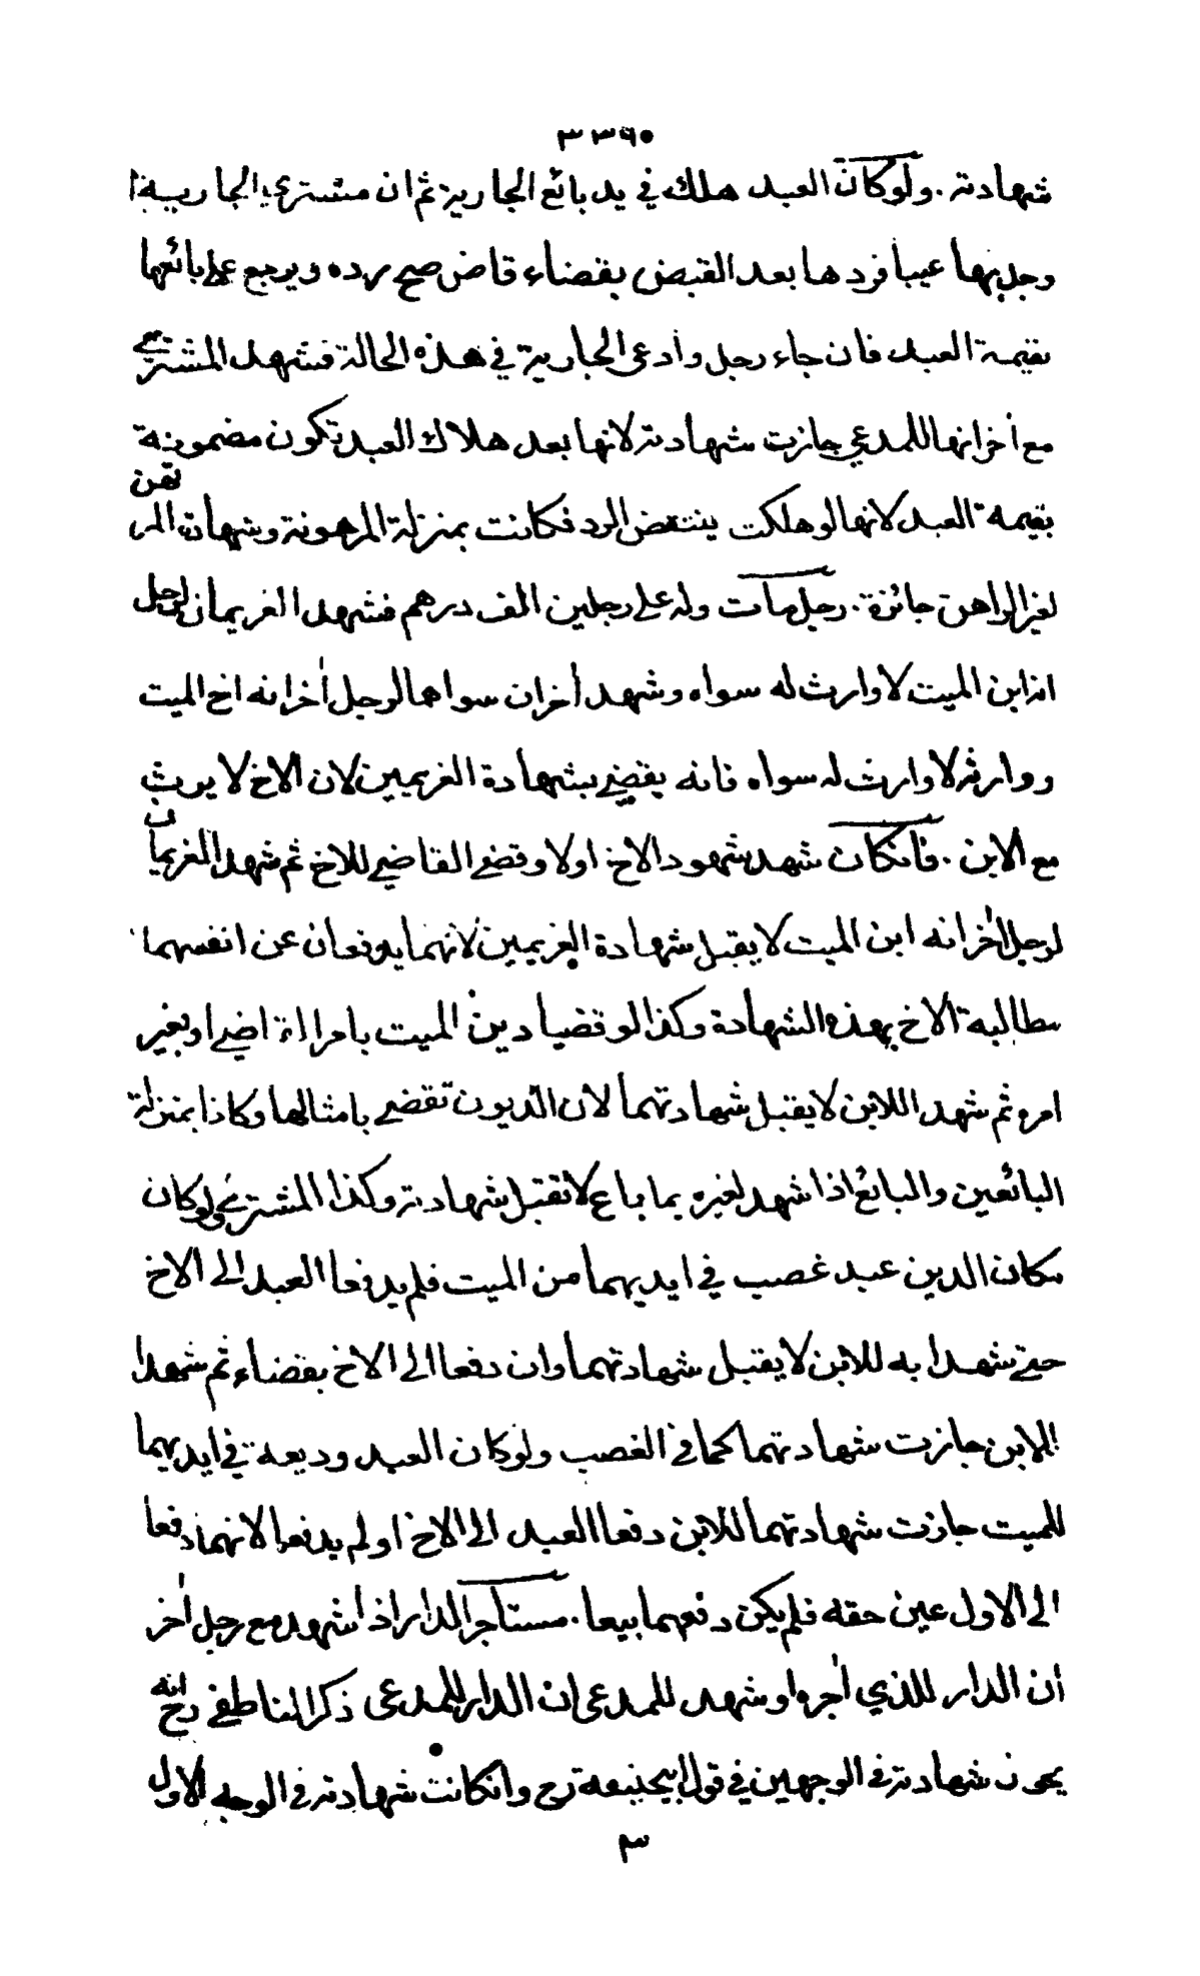 ٣٣٦٠
شهادته . ولو كان العبد هلك في يد بائع الجارية ثم ان مشتري الجارية
وجد بها عيبا فردها بعد القبض بقضاء قاض صح رده ويرجع على بائعها
بقيمة العبد فان جاء رجل وادعى الجارية في هذه الحالة فشهد المشتري
مع اخر انها للمدعي جازت شهادته لانها بعد هلاك العبد تكون مضمونة
بقيمة العبد لانها لو هلكت ينتقض الرد فكانت بمنزلة المرهونة وشهادة المرتهن
لغير الراهن جائزة . رجل مات وله على رجلين الف درهم فشهد الغريمان لرجل
انه ابن الميت لا وارث له سواه وشهد اخران سواهما لرجل أخر انه اخ الميت
ووارثه لا وارث له سواه فانه يقضي بشهادة الغريمين لان الاخ لا يرث
مع الابن . فانكان شهد شهود الاخ اولا وقضى القاضي للاخ ثم شهد الغريمان
لرجل اخر انه ابن الميت لا يقبل شهادة الغريمين لانهما يدفعان عن انفسهما
مطالبة الاخ بهذه الشهادة وكذا لو قضيا دين الميت بامر اضي او بغير
امره ثم شهدا للابن لا يقبل شهادتهما لان الديون تقضى بامثالها وكانا بمنزلة
البائعين والبائع اذا شهد لغيره بما باع لا تقبل شهادته وكذا المشتري ولو كان
مكان الدين عبد غصب في ايديهما من الميت فلم يدفعا العبد الى الاخ
حتى شهدا به للابن لا يقبل شهادتهما وان دفعا الى الاخ بقضاء ثم شهدا
للابن جازت شهادتهما كما في الغصب ولو كان العبد وديعة في ايديهما
للميت جازت شهادتهما للابن دفعا العبد الى الاخ او لم يدفعا لانهما دفعا
الى الاول عين حقه فلم يكن دفعهما بيعا . مستاجر الدار اذا شهد مع رجل أخر
ان الدار للذي أجره او شهد للمدعى ان الدار للمدعى ذكر الناطفي رح انه
يجوز شهادته في الوجهين في قول ابيحنيفة رح وانكانت شهادته في الوجه الاول
٣